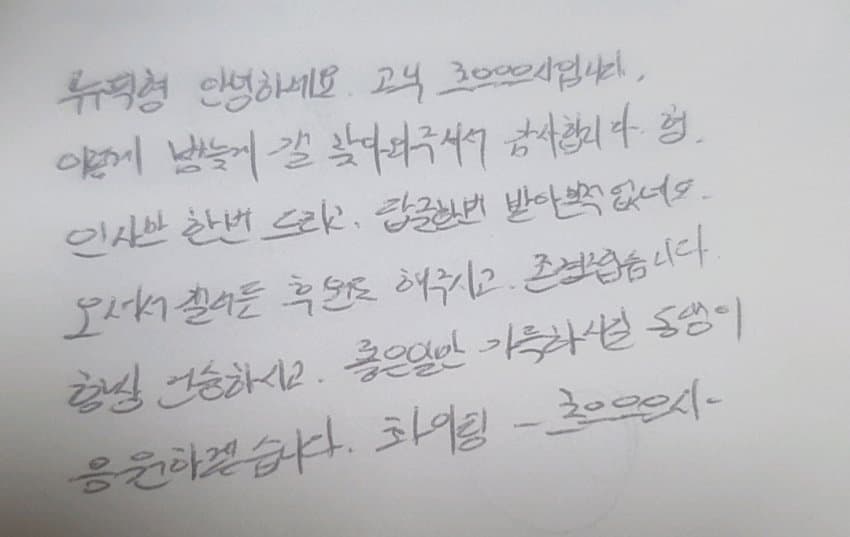 류픽형 안녕하세요. 고닉 초0000시입니다.
이렇게 밤늦게 갤 찾아와주셔서 감사합니다. 형.
인사만 한번 드리고. 답글한번 받아본적없너요.
오셔서 힘든 후원도 해주시고. 존경스럽습니다.
항상 건승하시고. 좋은일만 가득하시길 동생이
응원하겠습니다. 화이팅 - 초0000시-